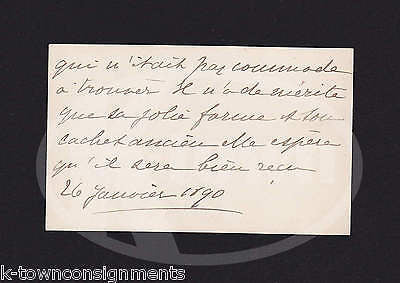 qui n'était pas commode
à trouver Il n'a de mérite
que sa jolie forme et son
cachet ancien Elle espère
qu'il sera bien reçu
26 Janvier 1890
k-townconsignments